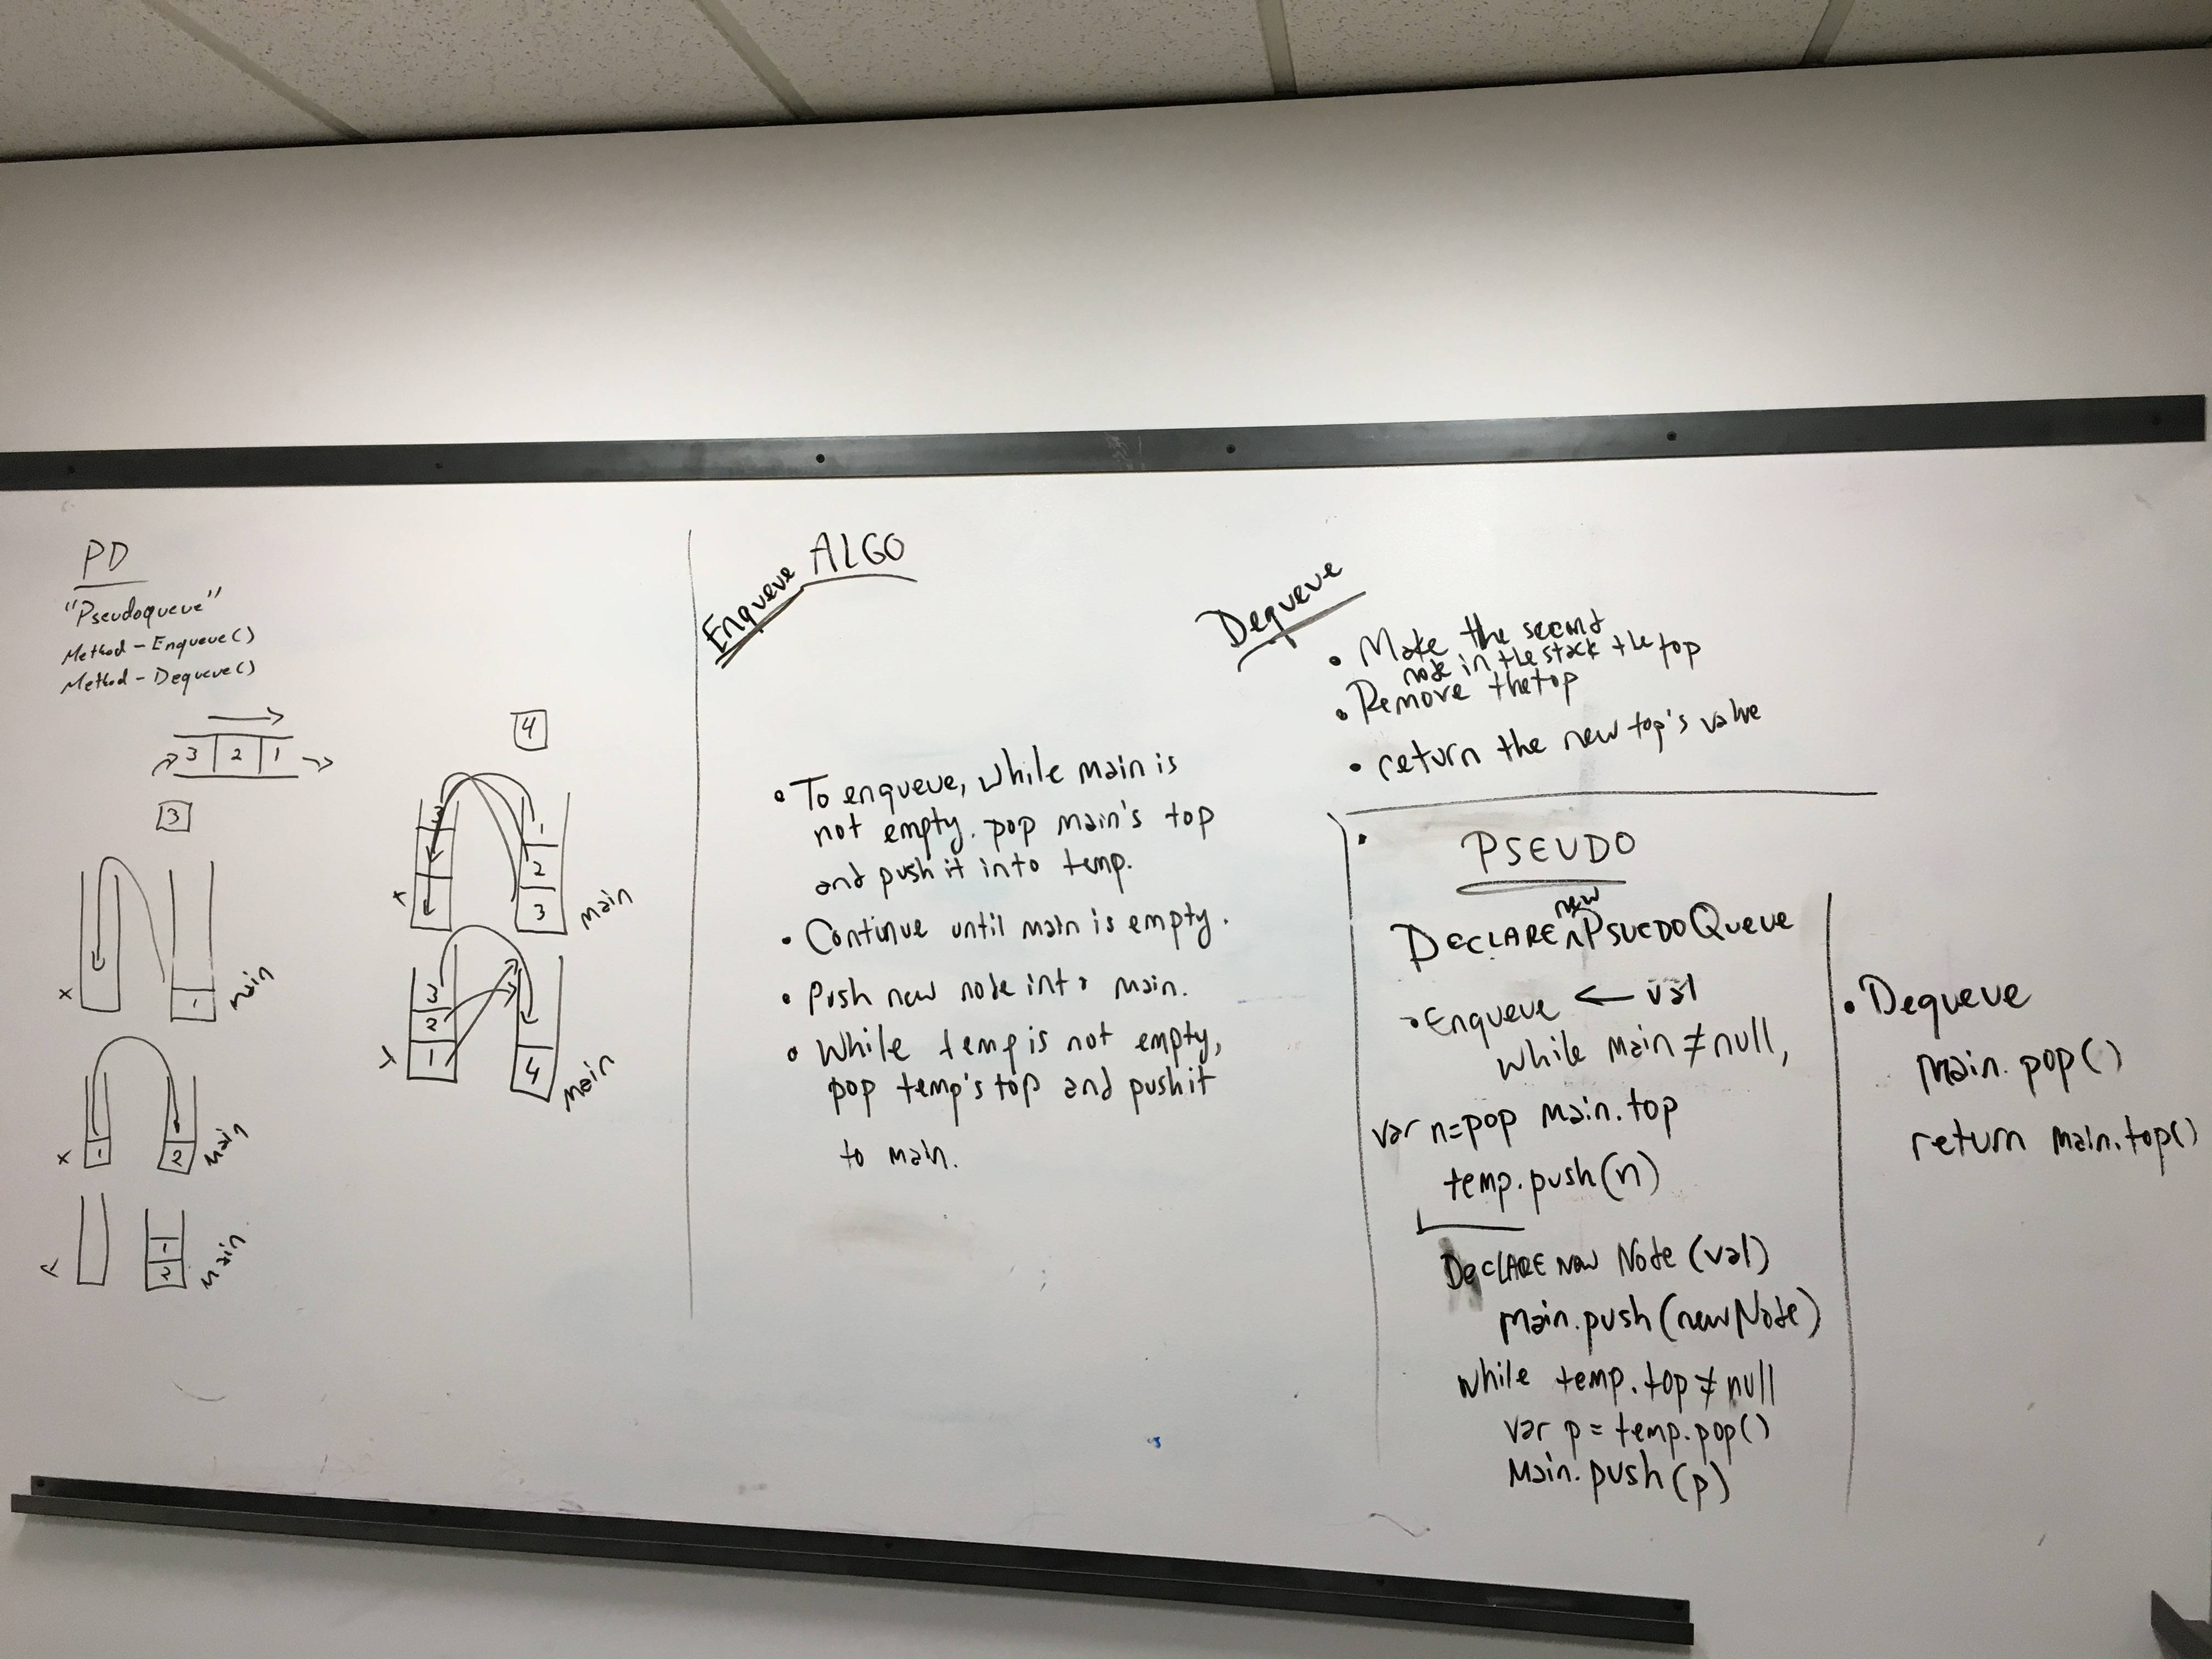 PD
"Pseudoqueue"
Method - Enqueue()
Method - Dequeue()
3 2 1
3
1
main
x
1
2
main
x
1
2
main
4
3
1
2
3
main
x
3
2
1
4
main
Enqueue ALGO
• To enqueue, while main is
not empty. pop main's top
and push it into temp.
• Continue until main is empty.
• Push new node into main.
• While temp is not empty,
pop temp's top and push it
to main.
Dequeue
• Make the second
node in the stack the top
• Remove the top
• return the new top's value
• PSEUDO
new
DECLARE ^ PSUEDOQueue
• Enqueue ← val
while main ≠ null,
var n = pop main.top
temp.push(n)
DECLARE new Node (val)
main.push(newNode)
while temp.top ≠ null
var p = temp.pop()
Main.push(p)
• Dequeue
Main.pop()
return main.top()